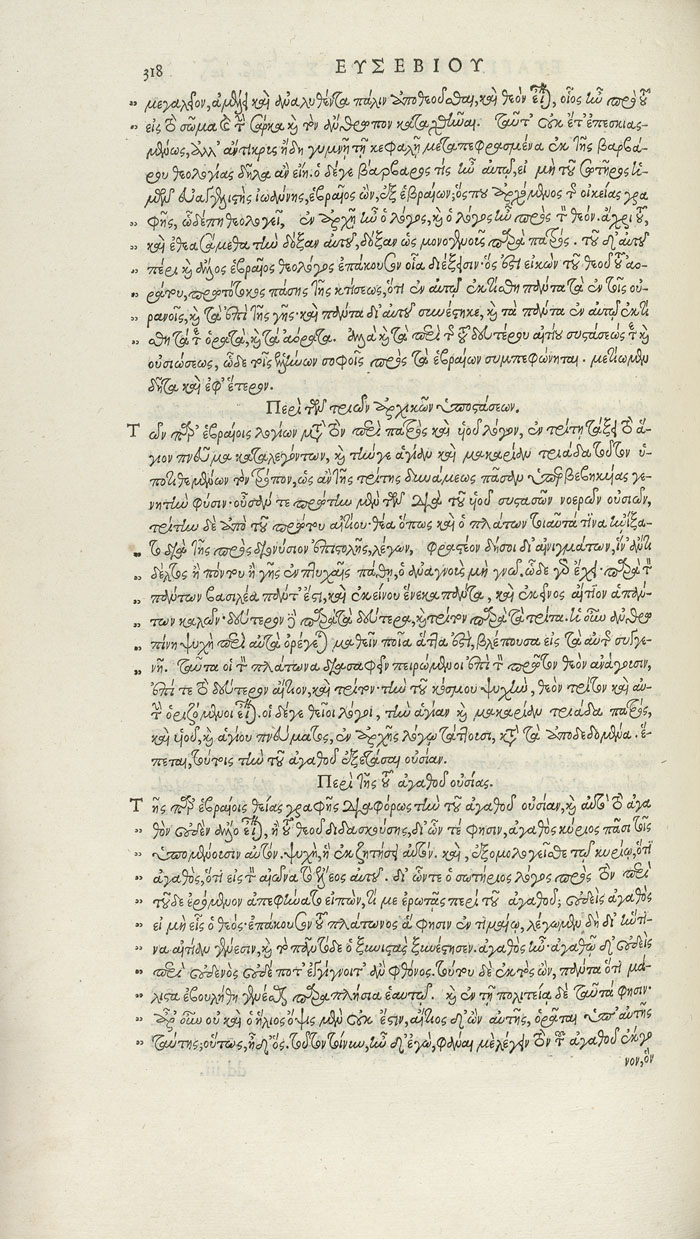 318 ΕΥΣΕΒΙΟΥ
μεγαλεῖον, ἀμέλει καὶ ἀναλυθέντα πάλιν ἀποθεοῦσθαι, καὶ θεὸν εἶναι, οἷος ἦν πρὸ τοῦ
εἰς τὸ σῶμα καὶ τὴν σάρκα καὶ τὸν ἄνθρωπον καταχθῆναι. Ταῦτ' οὐκ ἔτ' ἐπεσκιας-
μένως, ἀλλ' ἄντικρις ἤδη γυμνῇ τῇ κεφαλῇ μεταπεφρασμένα ἐκ τῆς βαρβά-
ρου θεολογίας δῆλα ἂν εἴη. ὁ δέ γε βάρβαρος τίς ἦν αὐτῷ, εἰ μὴ τοῦ σωτῆρος ἡ-
μῶν εὐαγγελιστὴς ἰωάννης, ἑβραῖος ὢν, ἐξ ἑβραίων; ὅς που ἀρχόμενος τῆς οἰκείας γρα
φῆς, ὧδέ πη θεολογεῖ, ἐν ἀρχῇ ἦν ὁ λόγος, καὶ ὁ λόγος ἦν πρὸς τὸν θεόν. ἄχρι τοῦ,
καὶ ἐθεασάμεθα τὴν δόξαν αὐτοῦ, δόξαν ὡς μονογενοῦς παρὰ πατρός. τοῦ δ' αὐτοῦ
πέρι καὶ ἄλλος ἑβραῖος θεολόγος ἐπάκουσον οἷα διέξεισιν· ὅς ἐστι εἰκὼν τοῦ θεοῦ τοῦ ἀο-
ράτου, πρωτότοκος πάσης τῆς κτίσεως, ὅτι ἐν αὐτῷ ἐκτίσθη πάντα τὰ ἐν τοῖς οὐ-
ρανοῖς, καὶ τὰ ἐπὶ τῆς γῆς· καὶ πάντα δι' αὐτοῦ συνέστηκε, καὶ τὰ πάντα ἐν αὐτῷ ἐκτί
σθη τά τε ὁρατὰ, καὶ τὰ ἀόρατα. ἀλλὰ καὶ τὰ περὶ τῆς τοῦ δευτέρου αἰτίου συστάσεώς τε καὶ
οὐσιώσεως, ὧδε τοῖς ἑλλήνων σοφοῖς πρὸς τὰ ἑβραίων συμπεφώνηται. μετίωμεν
δῆτα καὶ ἐφ' ἕτερον.
Περὶ τῶν τριῶν ἀρχικῶν ὑποστάσεων.
Τῶν παρ' ἑβραίοις λογίων μετὰ τὸν περὶ πατρὸς καὶ υἱοῦ λόγον, ἐν τρίτῃ τάξει τὸ ἅ-
γιον πνεῦμα καταλεγόντων, καὶ τήν γε ἁγίαν καὶ μακαρίαν τριάδα τοῦτον ὑ-
ποτιθεμένων τὸν τρόπον, ὡς ἂν τῆς τρίτης δυνάμεως πᾶσαν ὑπερβεβηκυίας γε-
νητὴν φύσιν· οὖσάν τε πρώτην μὲν τῶν διὰ τοῦ υἱοῦ συστασῶν νοερῶν οὐσιῶν,
τρίτην δὲ ἀπὸ τοῦ πρώτου αἰτίου· θέα ὅπως καὶ ὁ πλάτων τοιαῦτά τινα ᾐνίξα-
το διὰ τῆς πρὸς διονύσιον ἐπιστολῆς, λέγων, φραστέον δή σοι δι' αἰνιγμάτων, ἵν' ἄν τι
δέλτος ἢ πόντου ἢ γῆς ἐν πτυχαῖς πάθῃ, ὁ ἀναγνοὺς μὴ γνῷ, ὧδε γὰρ ἔχει· περὶ τὸν
πάντων βασιλέα πάντ' ἐστὶ, καὶ ἐκείνου ἕνεκα πάντα, καὶ ἐκεῖνος αἴτιον ἁπάν-
των καλῶν· δεύτερον δὲ περὶ τὰ δεύτερα, καὶ τρίτον περὶ τὰ τρίτα. ἡ οὖν ἀνθρω
πίνη ψυχὴ περὶ αὐτὰ ὀρέγεται μαθεῖν ποῖα ἄττα ἐστὶ, βλέπουσα εἰς τὰ αὑτῆς συγγε-
νῆ. Ταῦτα οἱ τὸν πλάτωνα διασαφεῖν πειρώμενοι ἐπὶ τὸν πρῶτον θεὸν ἀνάγουσιν,
ἐπί τε τὸ δεύτερον αἴτιον, καὶ τρίτον· τὴν τοῦ κόσμου ψυχὴν, θεὸν τρίτον καὶ αὐ-
τὴν ὁριζόμενοι εἶναι. οἱ δέ γε θεῖοι λόγοι, τὴν ἁγίαν καὶ μακαρίαν τριάδα πατρὸς,
καὶ υἱοῦ, καὶ ἁγίου πνεύματος, ἐν ἀρχῆς λόγῳ τάττουσι, κατὰ τὰ ἀποδεδομένα. ἕ-
πεται τούτοις τὴν τοῦ ἀγαθοῦ ἐξετάσαι οὐσίαν.
Περὶ τῆς τοῦ ἀγαθοῦ οὐσίας.
Τῆς παρ' ἑβραίοις θείας γραφῆς διαφόρως τὴν τοῦ ἀγαθοῦ οὐσίαν, καὶ αὐτὸ τὸ ἀγα
θὸν οὐδὲν ἄλλο εἶναι, ἢ τοῦ θεοῦ διδασκούσης, δι' ὧν τέ φησιν, ἀγαθὸς κύριος πᾶσι τοῖς
ὑπομένουσιν αὐτόν. ψυχῇ, ἣ ἐκζητήσει αὐτόν. καὶ, ἐξομολογεῖσθε τῷ κυρίῳ, ὅτι
ἀγαθὸς, ὅτι εἰς τὸν αἰῶνα τὸ ἔλεος αὐτοῦ. δι' ὧν τε ὁ σωτήριος λόγος πρὸς τὸν περὶ
τοῦδε ἐρόμενον ἀπεφήνατο εἰπὼν, τί με ἐρωτᾷς περὶ τοῦ ἀγαθοῦ; οὐδεὶς ἀγαθὸς
εἰ μὴ εἷς ὁ θεός· ἐπάκουσον τοῦ πλάτωνος ἅ φησιν ἐν τιμαίῳ, λέγωμεν δὴ δι' ἥν τι-
να αἰτίαν γένεσιν, καὶ τὸ πᾶν τόδε ὁ ξυνιστὰς ξυνέστησεν. ἀγαθὸς ἦν· ἀγαθῷ δ' οὐδεὶς
περὶ οὐδενὸς οὐδέ ποτ' ἐγγίγνοιτ' ἂν φθόνος. τούτου δὲ ἐκτὸς ὢν, πάντα ὅτι μά-
λιστα ἐβουλήθη γενέσθαι παραπλήσια ἑαυτῷ. καὶ ἐν τῇ πολιτείᾳ δὲ ταῦτά φησιν·
ἆρ' οὖν οὐ καὶ ὁ ἥλιος ὄψις μὲν οὐκ ἔστιν, αἴτιος δ' ὢν αὐτῆς, ὁρᾶται ὑπ' αὐτῆς
ταύτης; οὕτως, ἦ δ' ὅς. τοῦτον τοίνυν, ἦν δ' ἐγὼ, φάναι με λέγειν τὸν τοῦ ἀγαθοῦ ἔκγο
νον, ὃν